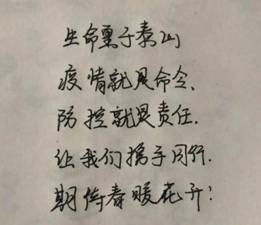 生命重于泰山
疫情就是命令、
防控就是责任.
让我们携手同行.
期待春暖花开!